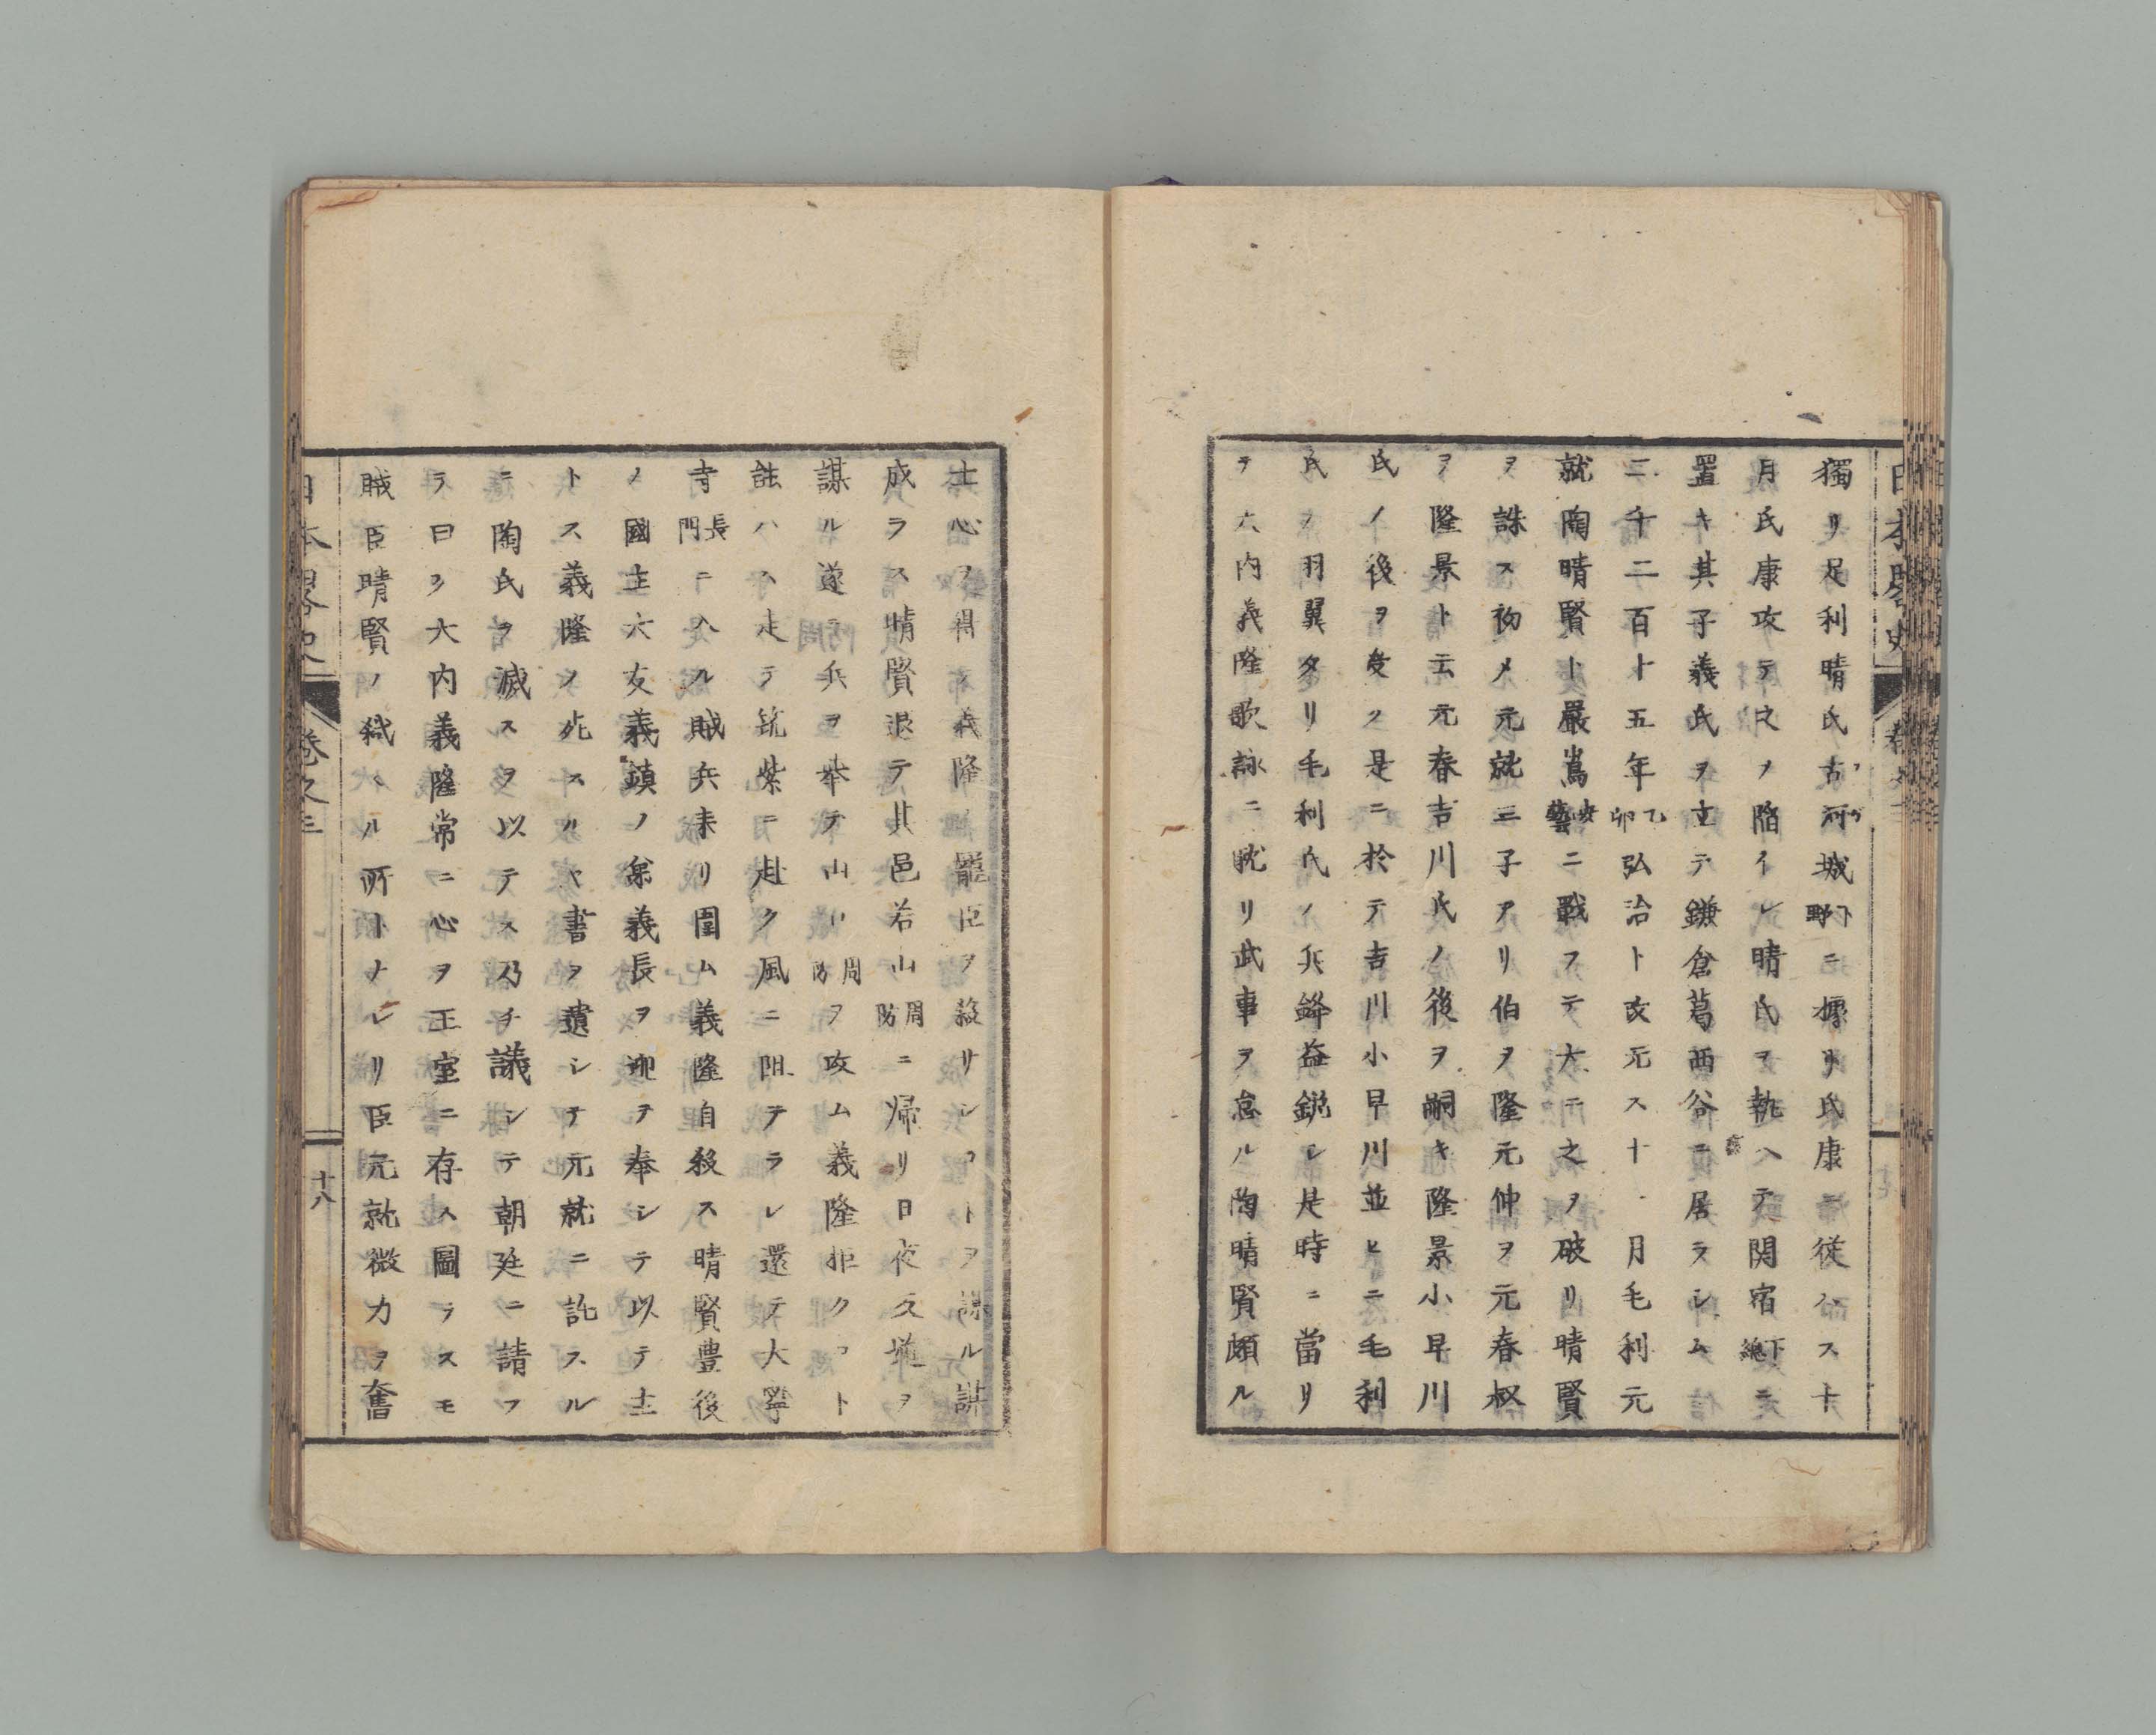 獨リ足利晴氏古河城下野ニ據リ氏康ニ従ハス十
月氏康攻テ之ヲ陷イレ晴氏ヲ執ヘテ関宿下總ニ
置キ其子義氏ヲ立テ鎌倉葛西谷ニ居ラシム
二千二百十五年乙卯弘治ト改元ス十一月毛利元
就陶晴賢ト嚴嶌安藝ニ戰フテ大ニ之ヲ破リ晴賢
ヲ誅ス初メ元就三子アリ伯ヲ隆元仲ヲ元春叔
ヲ隆景ト云元春吉川氏ノ後ヲ嗣キ隆景小早川
氏ノ後ヲ受ク是ニ於テ吉川小早川並ヒニ毛利
氏ノ羽翼タリ毛利氏ノ兵鋒益鋭シ是時ニ當リ
テ大内義隆歌詠ニ眈リ武事ヲ怠ル陶晴賢頗ル
士心ヲ得テ義隆ノ寵臣ヲ殺サンコトヲ謀ル謀
成ラス晴賢退テ其邑若山周防ニ帰リ日夜之ヲ
謀ル遂ニ兵ヲ挙テ山口周防ヲ攻ム義隆拒クコト
能ハス走テ筑紫ニ赴ク風ニ阻テラレ還テ大寧
寺長門ニ入ル賊兵来リ圍ム義隆自殺ス晴賢豊後
ノ國主大友義鎮ノ弟義長ヲ迎ヲ奉シテ以テ主
トス義隆ノ死スルヤ書ヲ遺シテ元就ニ託スル
ニ陶氏ヲ滅スヲ以テス乃チ議シテ朝廷ニ請フ
ラ曰ク大内義隆常ニ心ヲ王室ニ存ス圖ラスモ
賊臣晴賢ノ弑スル所トナレリ臣元就微力ヲ奮
日本畧史 巻之三 十八